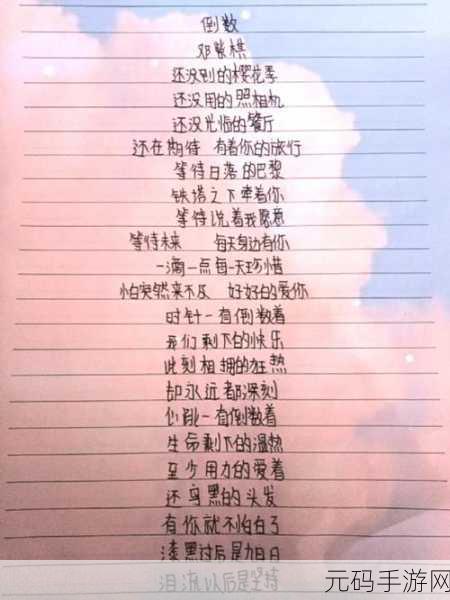 倒数
邓紫棋
还没到的樱花季
还没用的照相机
还没光临的餐厅
还在期待 有着你的旅行
等待日落的巴黎
铁塔之下牵着你
等待说着我愿意
等待未来 每天身边有你
一滴一点每一天珍惜
怕突然来不及 好好的爱你
时针一直倒数着
我们剩下的快乐
此刻相拥的狂热
却永远都深刻
心跳一直倒数着
生命剩下的温热
至少用力的爱着
还乌黑的头发
有你就不怕白了
漆黑过后是旭日
泪流以后是坚持
元码手游网